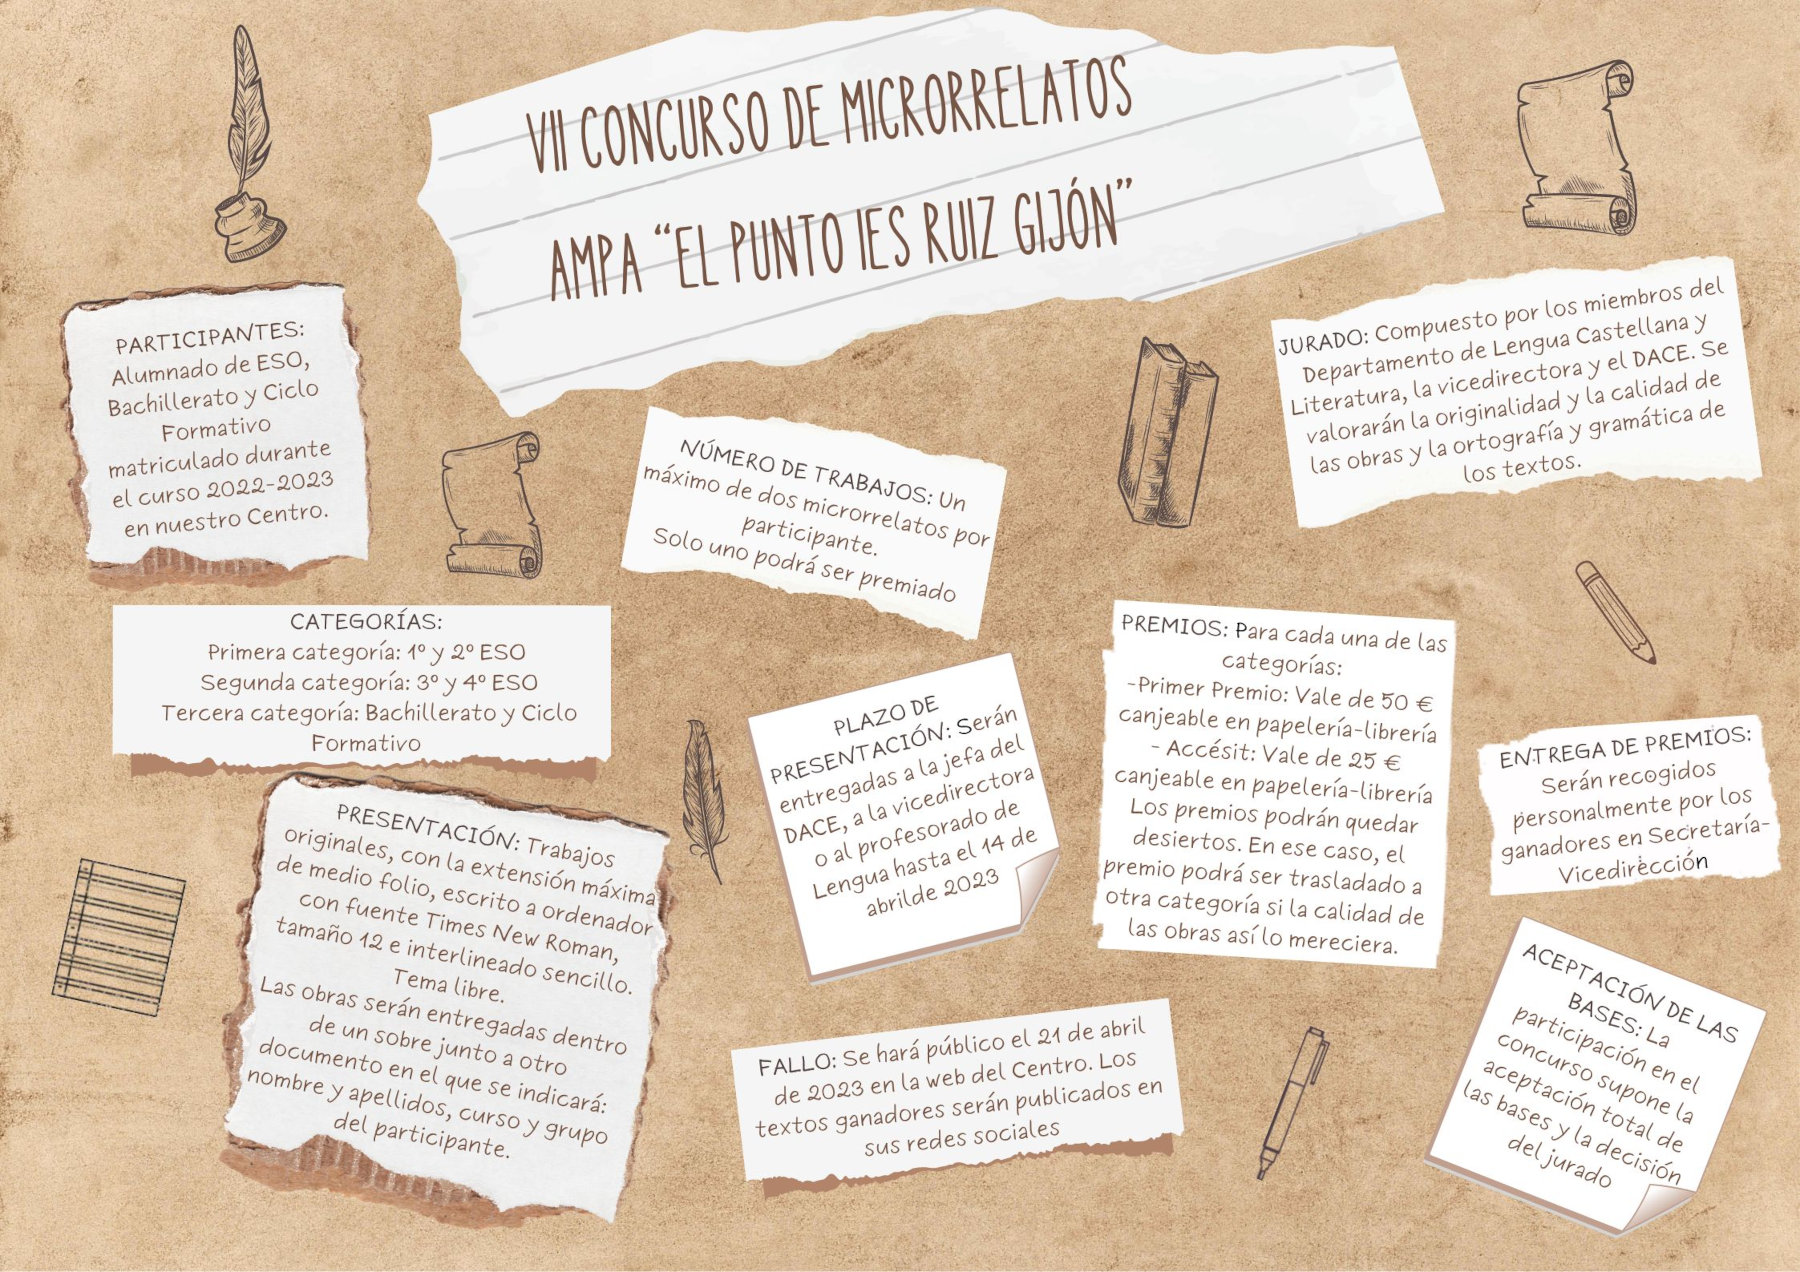 VII CONCURSO DE MICRORRELATOS
AMPA “EL PUNTO IES RUIZ GIJÓN”
PARTICIPANTES:
Alumnado de ESO,
Bachillerato y Ciclo
Formativo
matriculado durante
el curso 2022-2023
en nuestro Centro.
NÚMERO DE TRABAJOS: Un
máximo de dos microrrelatos por
participante.
Solo uno podrá ser premiado
JURADO: Compuesto por los miembros del
Departamento de Lengua Castellana y
Literatura, la vicedirectora y el DACE. Se
valorarán la originalidad y la calidad de
las obras y la ortografía y gramática de
los textos.
CATEGORÍAS:
Primera categoría: 1º y 2º ESO
Segunda categoría: 3º y 4º ESO
Tercera categoría: Bachillerato y Ciclo
Formativo
PLAZO DE
PRESENTACIÓN: Serán
entregadas a la jefa del
DACE, a la vicedirectora
o al profesorado de
Lengua hasta el 14 de
abrilde 2023
PREMIOS: Para cada una de las
categorías:
-Primer Premio: Vale de 50 €
canjeable en papelería-librería
- Accésit: Vale de 25 €
canjeable en papelería-librería
Los premios podrán quedar
desiertos. En ese caso, el
premio podrá ser trasladado a
otra categoría si la calidad de
las obras así lo mereciera.
ENTREGA DE PREMIOS:
Serán recogidos
personalmente por los
ganadores en Secretaría-
Vicedirección
PRESENTACIÓN: Trabajos
originales, con la extensión máxima
de medio folio, escrito a ordenador
con fuente Times New Roman,
tamaño 12 e interlineado sencillo.
Tema libre.
Las obras serán entregadas dentro
de un sobre junto a otro
documento en el que se indicará:
nombre y apellidos, curso y grupo
del participante.
FALLO: Se hará público el 21 de abril
de 2023 en la web del Centro. Los
textos ganadores serán publicados en
sus redes sociales
ACEPTACIÓN DE LAS
BASES: La
participación en el
concurso supone la
aceptación total de
las bases y la decisión
del jurado